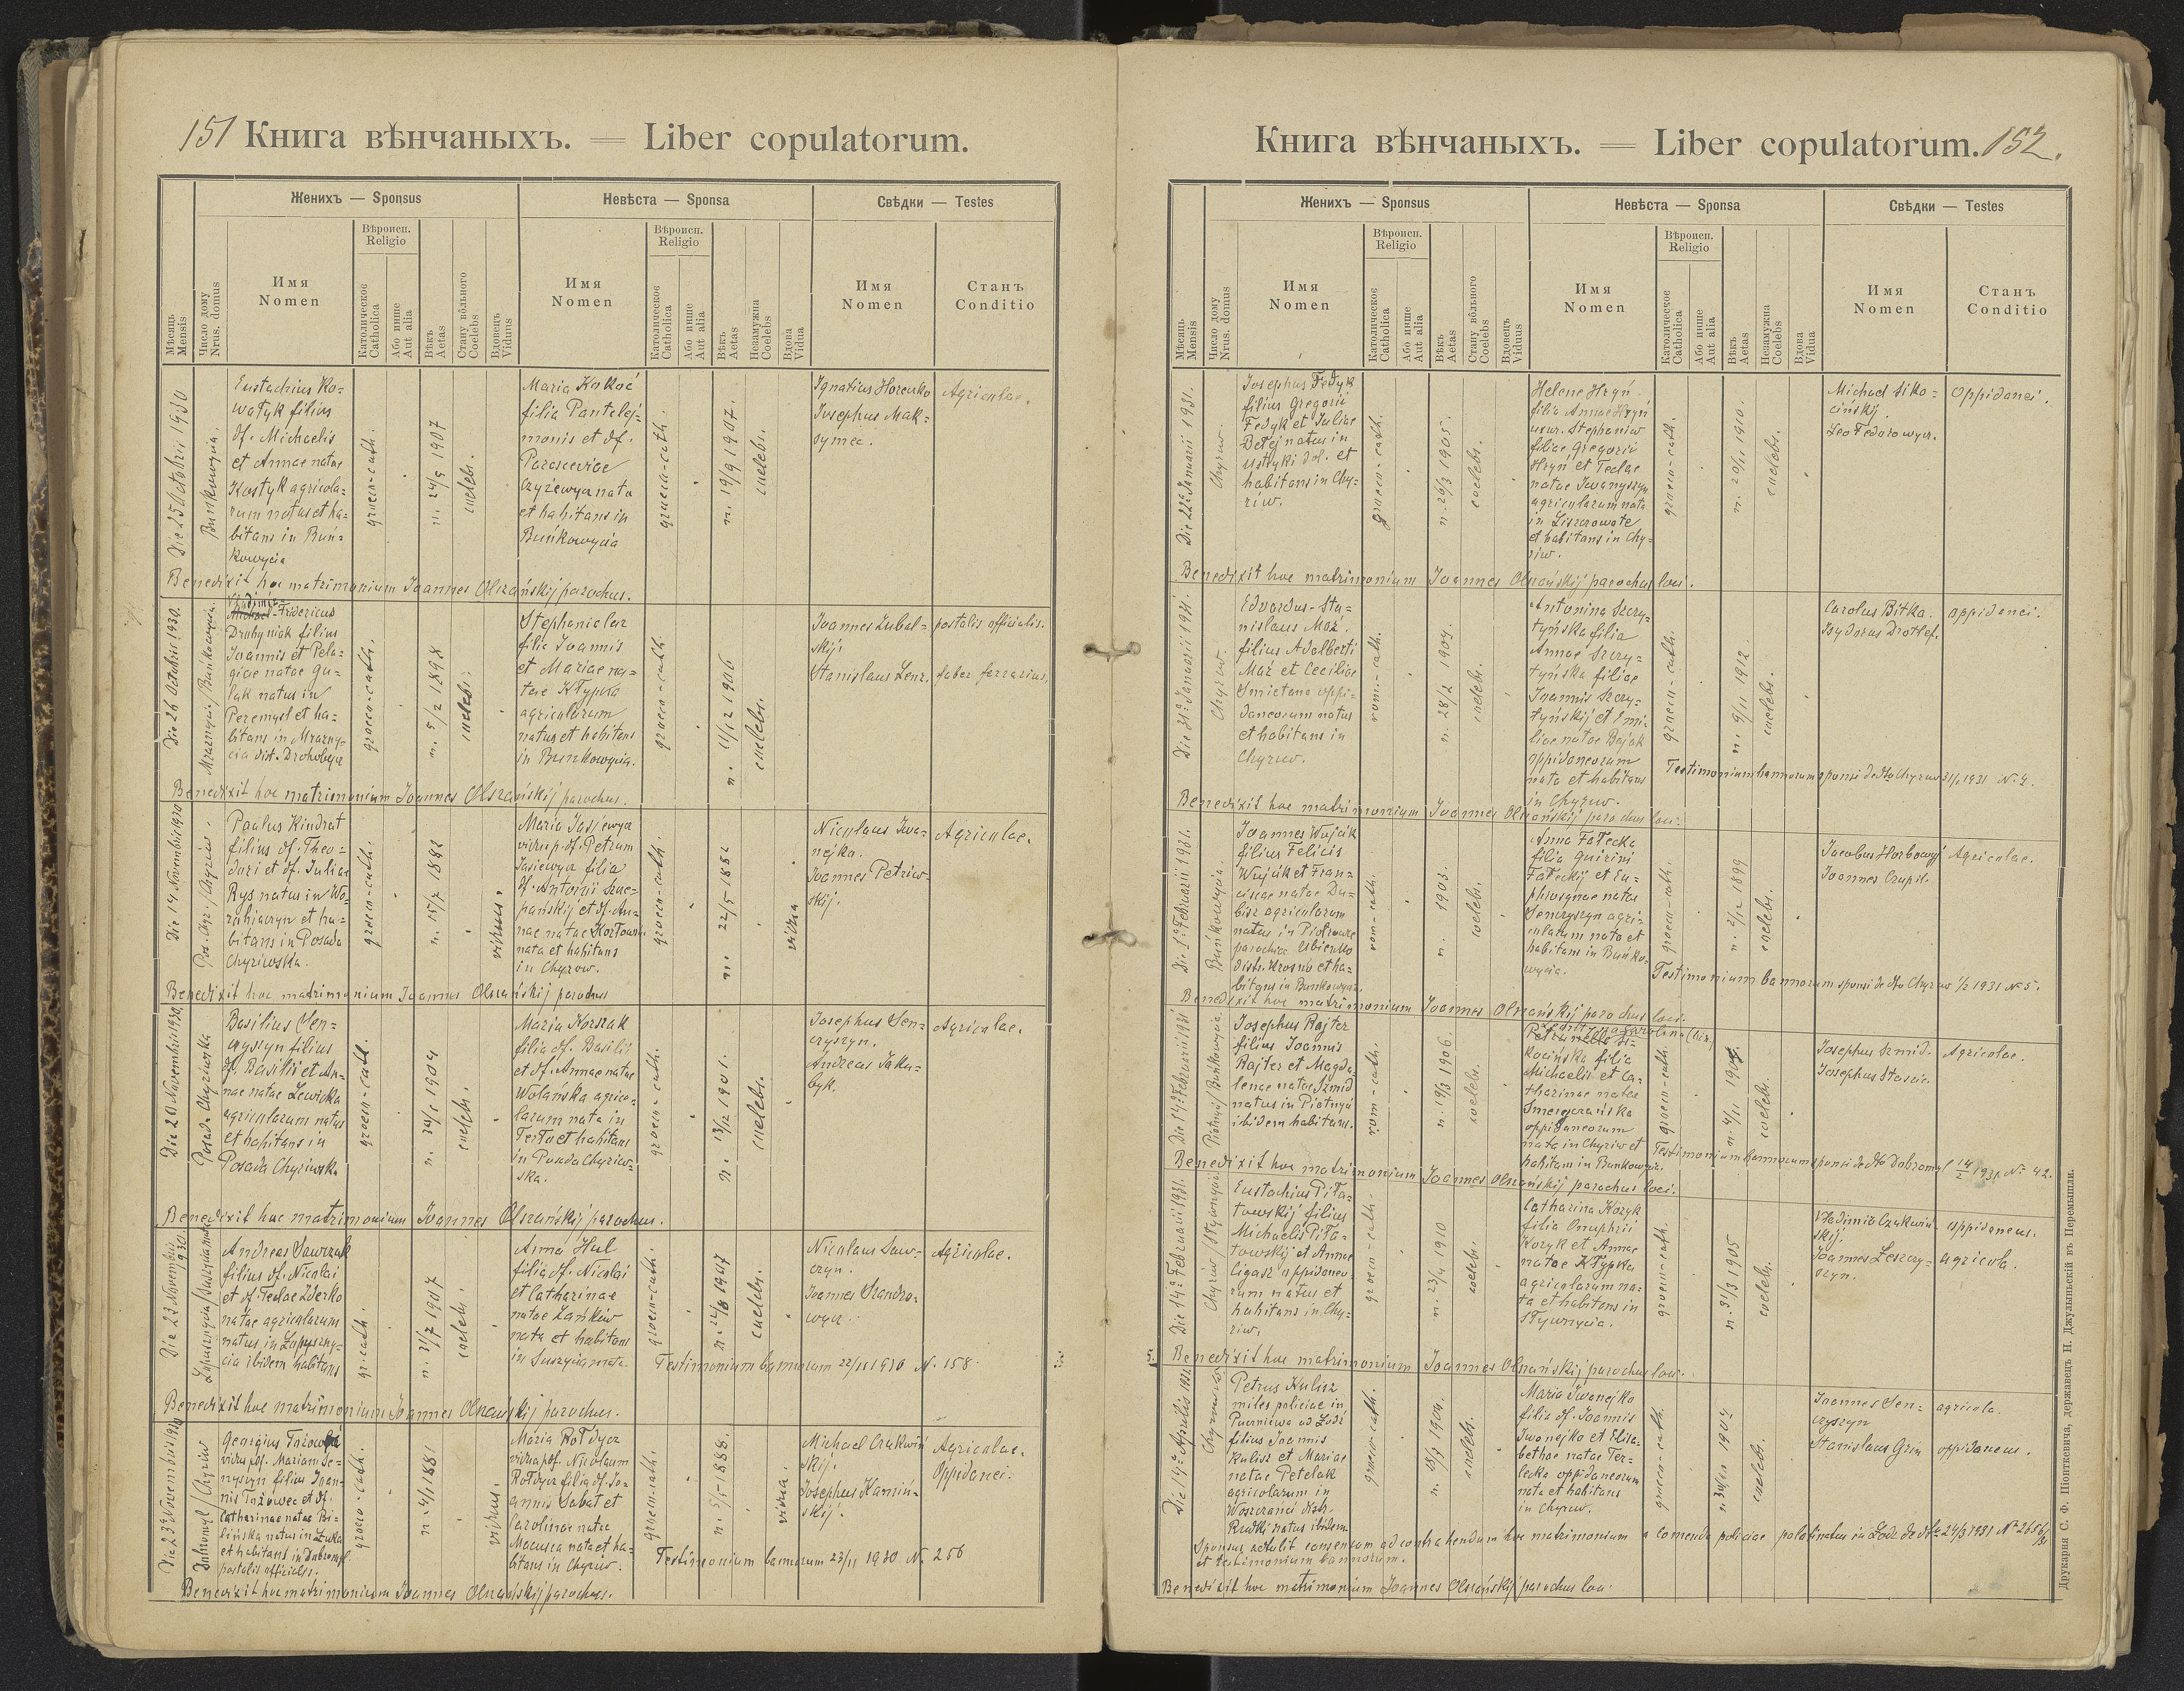 151 Книга вѣнчаныхъ. = Liber copulatorum.
Женихъ — Sponsus
Невѣста — Sponsa
Свѣдки — Testes
Мѣсяць Mensis
Число дому Nrus. domus
Имя Nomen
Вѣроисп. Religio
Католическое Catholica
Або инше Aut alia
Вѣкъ Aetas
Стану вôльного Coelebs
Вдовець Viduus
Имя Nomen
Вѣроисп. Religio
Католическое Catholica
Або инше Aut alia
Вѣкъ Aetas
Незамужна Coelebs
Вдова Vidua
Имя Nomen
Станъ Conditio
Die 25 Octobris 1930
Bunkowycia.
Eustachius Ko=
watyk filius
df. Michaelis
et Annae natae
Kostyk agricola=
rum natus et ha=
bitans in Buń=
kowycia
graeco-cath.
n. 24/9 1907
coelebs.
Maria Kokoć
filia Pantelej=
monis et df.
Parasceviae
Czyżewycz nata
et habitans in
Buńkowycia
graeco-cath.
n. 19/9 1907.
coelebs.
Ignatius Horenko
Josephus Mak=
symec.
Agricolae.
Benedixit hoc matrimonium Joannes Olszańskij parochus.
Die 26 Octobris 1930.
Mraznycia/Bunkowycia.
Fridericus
Druhyniak filius
Joannis et Pela=
giae natae Gu=
lak natus in
Peremysl et ha=
bitans in Mrazny=
cia dist. Drohobycz
graeco-cath.
n. 5/2 1898
coelebs.
Stephania Lenz
filia Joannis
et Mariae na=
tae Kłypka
agricolarum
natus et habitans
in Bunkowycia.
graeco-cath.
n. 11/12 1906
coelebs.
Joannes Zubal=
skij
Stanislaus Lenz.
postalis officialis.
faber ferrarius.
Benedixit hoc matrimonium Joannes Olszańskij parochus.
Die 14 Novembris 1930
Pos. Chyr./Chyriw.
Paulus Kindrat
filius df. Theo=
dori et df. Juliae
Rys natus in Wo=
bitans in Posada
Chyriwska.
graeco-cath.
n. 15/7 1882
viduus.
Maria Jasiewycz
vidua p. df. Petrum
Jasiewycz filia
df. Antonii Szcze=
pańskij et df. An=
nae natae
nata et habitans
in Chyrow.
graeco-cath.
n. 22/5 1882
vidua
Nicolaus Iwa=
nejko.
Joannes Petriw=
skij.
Agricolae.
Benedixit hoc matrimonium Joannes Olszańskij parochus
Die 20 Novembris 1930.
Posada Chyriwska
Basilius Sen=
czyszyn filius
df. Basilii et An=
nae natae Lewicka
agricolarum natus
et habitans in
Posada Chyriwska
graeco-cath.
coelebs.
Maria Korszak
filia df. Basilii
et df. Annae natae
Wolańska agrico=
larum nata in
Terło et habitans
in Posada Chyriw=
ska.
graeco-cath.
n. 13/12 1901.
coelebs.
Josephus Sen=
czyszyn.
Andreas Jaku=
byk.
Agricolae.
Benedixit hoc matrimonium Joannes Olszańskij parochus.
Die 22 Novembris 1930.
Andreas Sawczak
filius df. Nicolai
et df. Teclae Zderko
natae agricolarum
natus in Łopuszny=
cia ibidem habitans
gr-cath.
n. 2/7 1907
coelebs.
Anna Hul
filia df. Nicolai
et Catharinae
natae Łańkiw
nata et habitans
in Suszycia mała.
graeco-cath.
coelebs.
Nicolaus Saw=
czyn.
Joannes Szandro=
wycz.
Agricolae.
Testimonium bannorum 22/11 1930 N. 158.
Benedixit hoc matrimonium Joannes Olszańskij parochus.
Die 23 Novembris 1930
Dobromyl/Chyriw
Georgius
vidu p. df. Mariam Se=
nyszyn filius Joan=
nis Tużowec et df.
Catharinae natae Bi=
lińska natus in Łuka
et habitans in Dobromyl
postalis officialis.
graeco-cath.
n. 4/1 1881
viduus.
Maria Rołdycz
vidua p. df. Nicolaum
Rołdycz filia df. Jo=
annis Sabat et
Carolinae natae
nata et ha=
bitans in Chyriw.
graeco-cath.
n. 5/5 1888.
vidua.
Michael Czukwiń=
skij.
Josephus Kamiń=
skij.
Agricolae.
Oppidanei.
Testimonium bannorum 23/11 1930 N. 256
Benedixit hoc matrimonium Joannes Olszańskij parochus.
Книга вѣнчаныхъ. = Liber copulatorum. 152.
Женихъ — Sponsus
Невѣста — Sponsa
Свѣдки — Testes
Мѣсяць Mensis
Число дому Nrus. domus
Имя Nomen
Вѣроисп. Religio
Католическое Catholica
Або инше Aut alia
Вѣкъ Aetas
Стану вôльного Coelebs
Вдовець Viduus
Имя Nomen
Вѣроисп. Religio
Католическое Catholica
Або инше Aut alia
Вѣкъ Aetas
Незамужна Coelebs
Вдова Vidua
Имя Nomen
Станъ Conditio
Die 22ª Januarii 1931.
Chyrow.
Josephus Fedyk
filius Gregorii
Fedyk et Juliae
Betej natus in
Ustryki dol. et
habitans in Chy=
riw.
graeco-cath.
n. 26/3 1905.
coelebs.
Helene Hryń
filia Annae Hryń
uxor. Stephaniw
filiae Gregorii
Hryń et Teclae
natae Iwanyszyn
agricolarum nata
in Liszczowate
et habitans in Chy=
riw.
graeco-cath.
n. 20/11 1910.
coelebs.
Michael Siko=
cińskij.
Leo Fedorowycz.
Oppidanei.
Benedixit hoc matrimonium Joannes Olszańskij parochus loci.
Die 31ª Januarii 1931.
Chyrow.
Edvardus-Sta=
nislaus Maź.
filius Adalberti
Maź et Ceciliae
Smietana oppi=
daneorum natus
et habitans in
Chyrow.
rom-cath.
n. 28/2 1904.
coelebs.
Antonina Szczy=
tyńska filia
Annae Szczy=
tyńska filiae
Joannis Szczy=
tyńskij et Emi=
liae natae Bajak
oppidaneorum
nata et habitans
in Chyrow.
graeco-cath.
n. 9/11 1912
coelebs.
Carolus Bitka.
Isydorus Drotlef.
oppidanei.
Testimonium bannorum sponsi de dto Chyrow 31/1 1931 N. 4.
Benedixit hoc matrimonium Joannes Olszańskij parochus loci.
Die 1ª Februarii 1931.
Buńkowycia.
Joannes Wujcik
filius Felicis
Wujcik et Fran=
ciscae natae Du=
bisz agricolarum
natus in Piotrowce
parochiae Ubieszko
distr. Krosno et ha=
bitans in Bunkowycia.
rom-cath.
n. 1903.
coelebs.
Anna Fałecka
filia Quirini
Fałeckij et Eu=
phrosynae natae
Senczyszyn agri=
colarum nata et
habitans in Buńko=
wycia.
graeco-cath.
n. 2/12 1899
coelebs.
Jacobus Horbowyj
Joannes Czupil.
Agricolae.
Testimonium bannorum sponsi de dto Chyrow 1/2 1931 N 5.
Benedixit hoc matrimonium Joannes Olszańskij parochus loci.
Die 14ª Februarii 1931
Piatnycia/Buńkowycia.
Josephus Rajter
filius Joannis
Rajter et Magda=
lenae natae Szmid
natus in Piatnycia
ibidem habitans.
rom-cath.
n. 19/3 1906.
coelebs.
kocińska filia
Michaelis et Ca=
tharinae natae
oppidaneorum
nata in Chyriw et
habitans in Bunkowycia.
graeco-cath.
coelebs.
Josephus Szmid.
Josephus Stasio.
Agricolae.
Testimonium bannorum sponsi de dto Dobromyl 14/2 1931 N. 42.
Benedixit hoc matrimonium Joannes Olszańskij parochus loci.
Die 14ª Februarii 1931.
Eustachius Piła=
towskij filius
Michaelis Piła=
towskij et Annae
Ligasz oppidaneo=
rum natus et
habitans in Chy=
riw.
graeco-cath.
n. 23/4 1910
coelebs.
Catharina Kozyk
filia Onuphrii
Kozyk et Annae
natae Kłypka
agricolarum na=
ta et habitans in
Sływnycia.
graeco-cath.
n. 31/3 1905
coelebs.
Vladimir Czukwiń=
skij.
Joannes Leszczy=
szyn.
oppidaneus.
agricola.
Benedixit hoc matrimonium Joannes Olszańskij parochus loci.
Die 14ª Aprilis 1931.
Petrus Kulisz
miles policiae in
ad Łódź
filius Joannis
Kulisz et Mariae
natae Petelak
agricolarum in
Woszczanci distr.
Rudki natus ibidem
graeco-cath.
coelebs.
Maria Iwanejko
filia df. Joannis
Iwanejko et Elisa=
bethae natae Ter=
lecka oppidaneorum
nata et habitans
in Chyrow.
graeco-cath.
coelebs.
Joannes Sen=
czyszyn
Stanislaus Gzin
agricola.
oppidaneus.
Sponsus attulit consensum ad contrahendum hoc matrimonium a comenda policiae palatinatus in Łódz de dto 24/3 1931 Nº 2656/31
et testimonium bannorum.
Benedixit hoc matrimonium Joannes Olszańskij parochus loci.
Друкарня С. Ф. Піонткевича, державець И. Джулыньскій въ Перемышли.